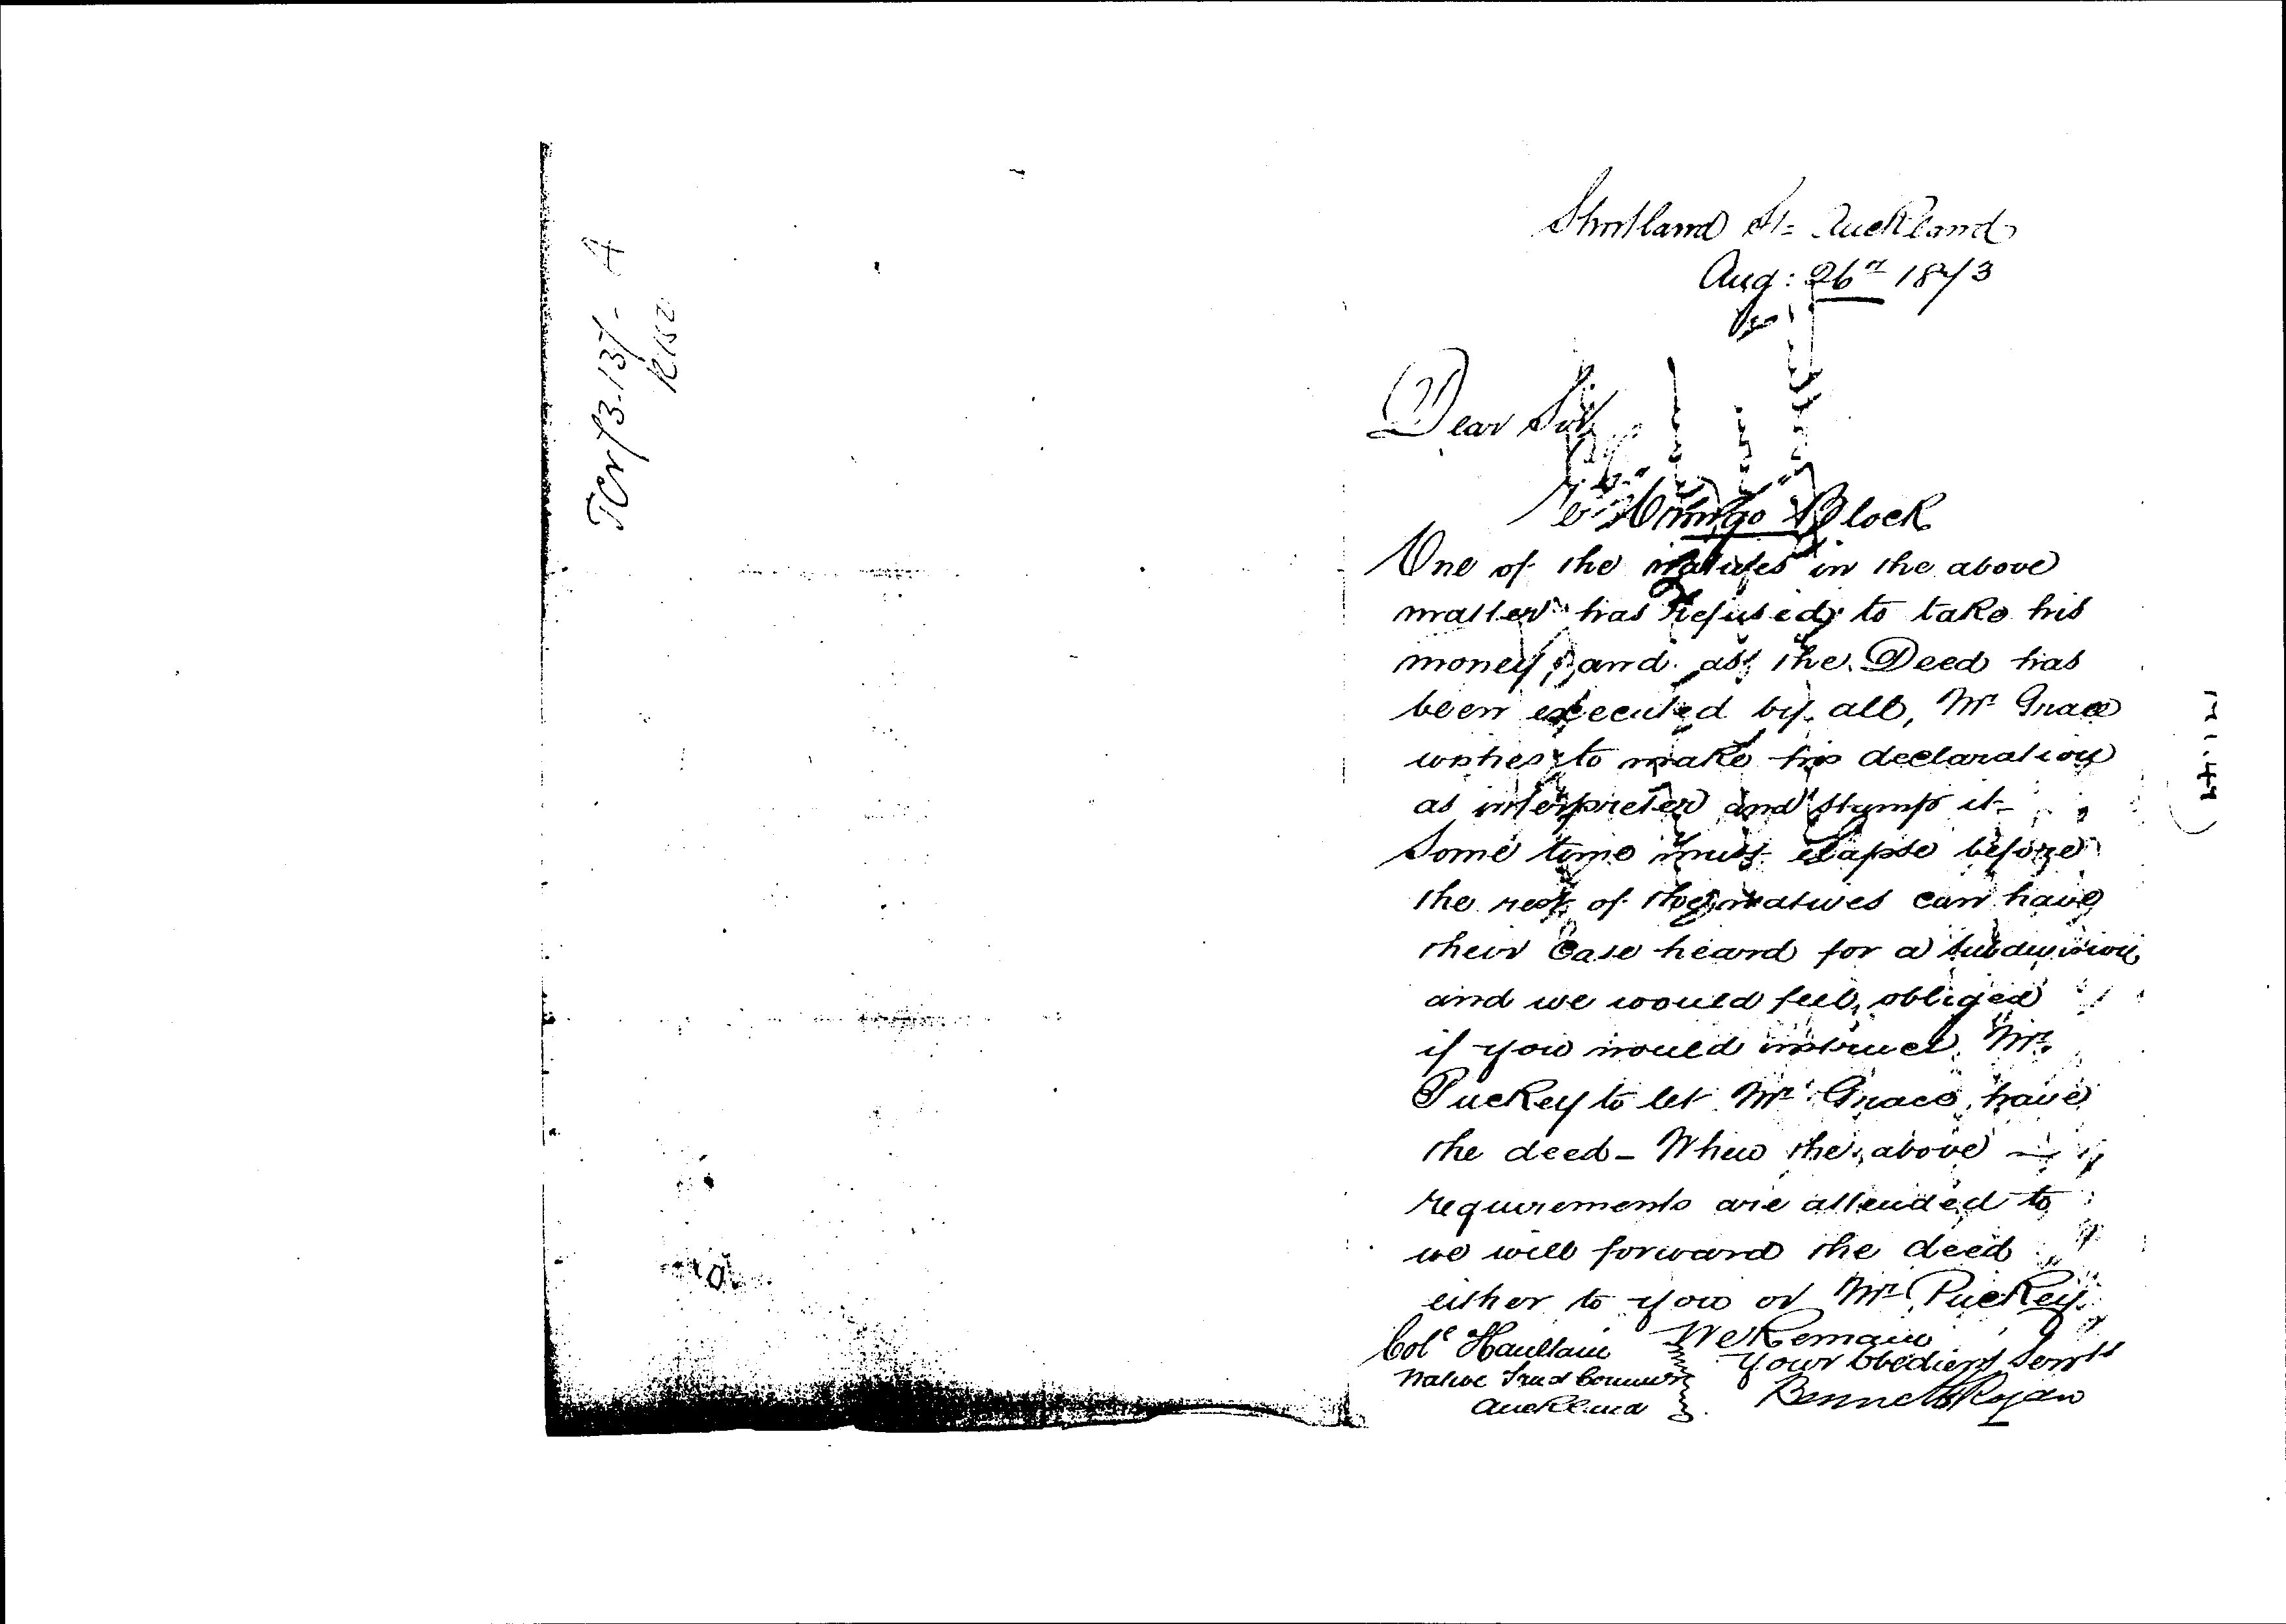 TCW 73-137- A
R152
Shortland St= Auckland
Aug: 26th 1873
Dear Sir
Block
One of the natives in the above
matter has refused to take his
money, and as the Deed has
been executed by all, Mr Grace
wishes to make his declaration
as interpreter and stamp it-
Some time must elapse before
the rest of the natives can have
their Case heard for a subdivision
and we would feel obliged
if you would instruct Mr.
Puckey to let Mr Grace have
the deed - When the above
requirements are attended to
we will forward the deed
either to you or Mr Puckey.
We Remain
Your Obedient Servts
Bennett
Col Haultain
Native Commr
Auckland